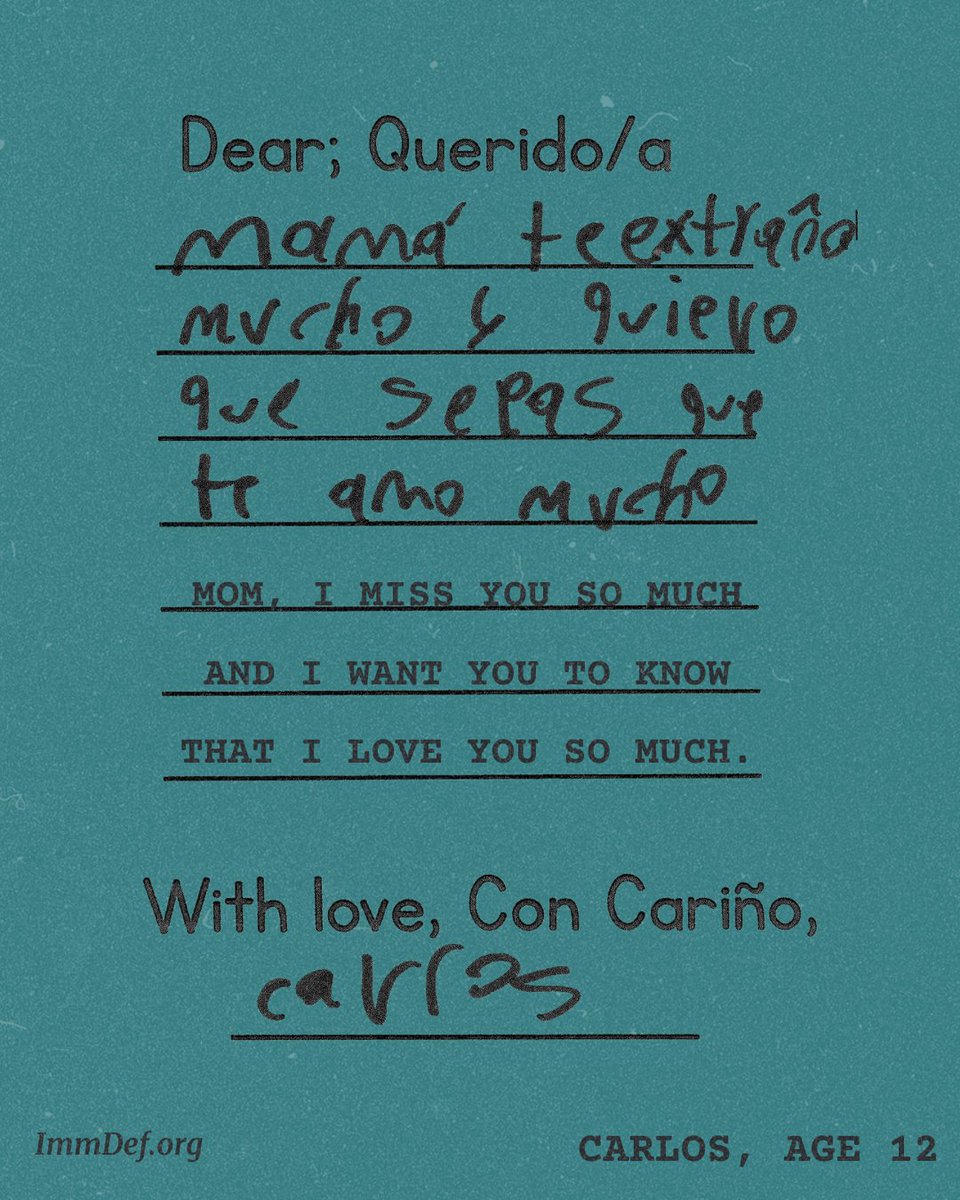 Dear; Querido/a
mamá te extraño
mucho y quiero
que sepas que
te amo mucho
MOM, I MISS YOU SO MUCH
AND I WANT YOU TO KNOW
THAT I LOVE YOU SO MUCH.
With love, Con Cariño,
carlos
ImmDef.org
CARLOS, AGE 12